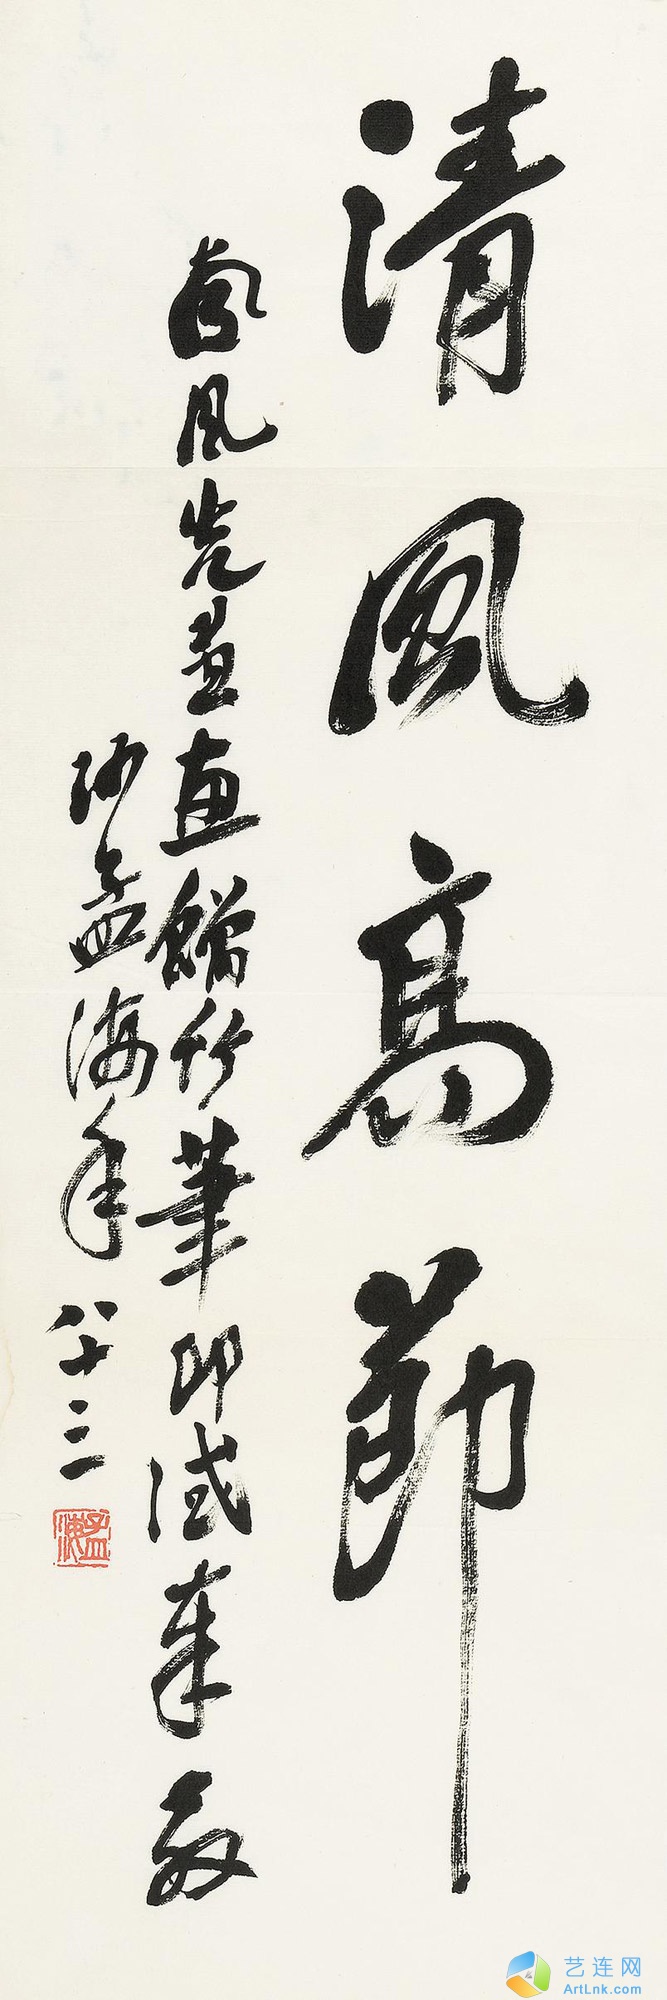 清風高節
風先惠竹筆即試奉教
沙孟海年八十三
孟海
艺连网
ArtLnk.com